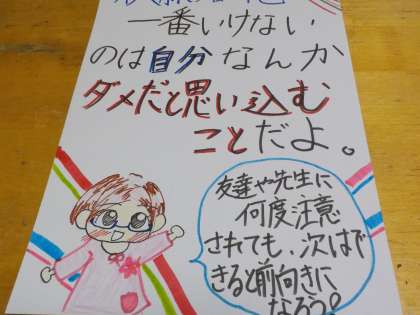 一番いけない
のは自分なんか
ダメだと思い込む
ことだよ。
友達や先生に
何度注意
されても、次はで
きると前向きに
なろう。